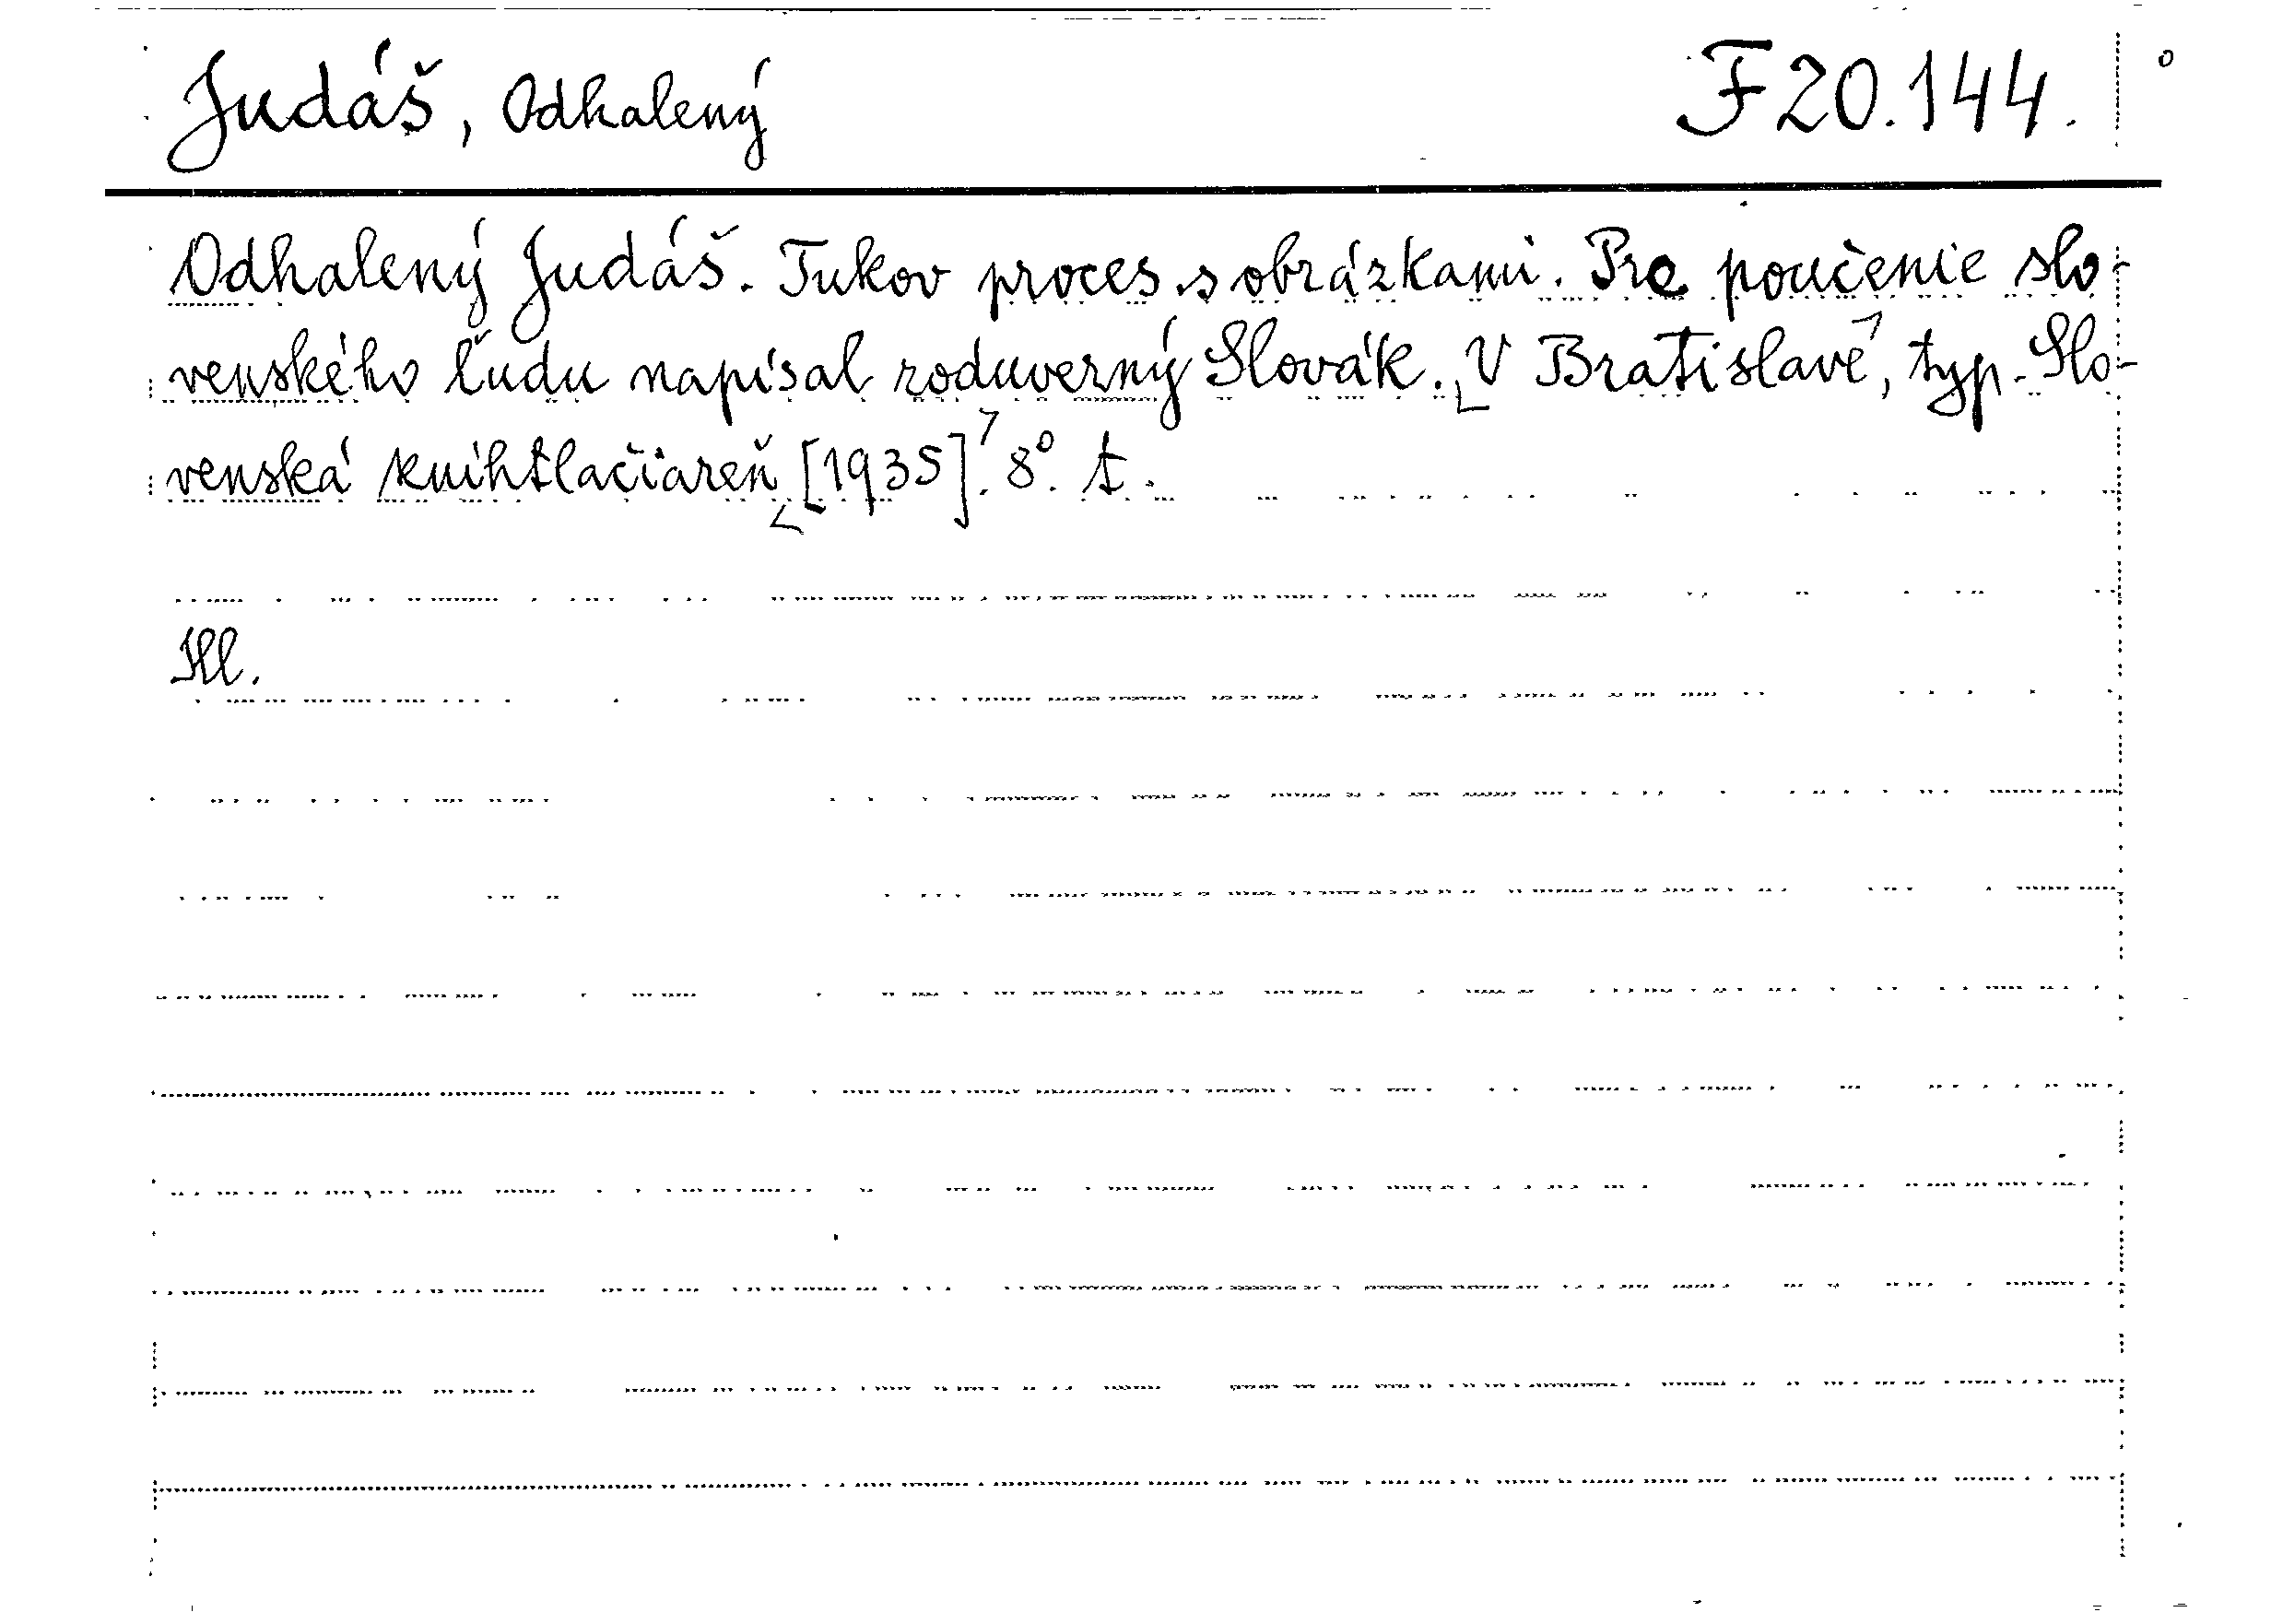 Judáš, Odhalený F 20.144.
Odhalený Judáš. Tukov proces s obrázkami. Pre poučenie slo-
venského ľudu napísal roduverný Slovák. V Bratislavě, typ. Slo-
venská knihtlačiareň [1935]. 8°. t.
Ill.